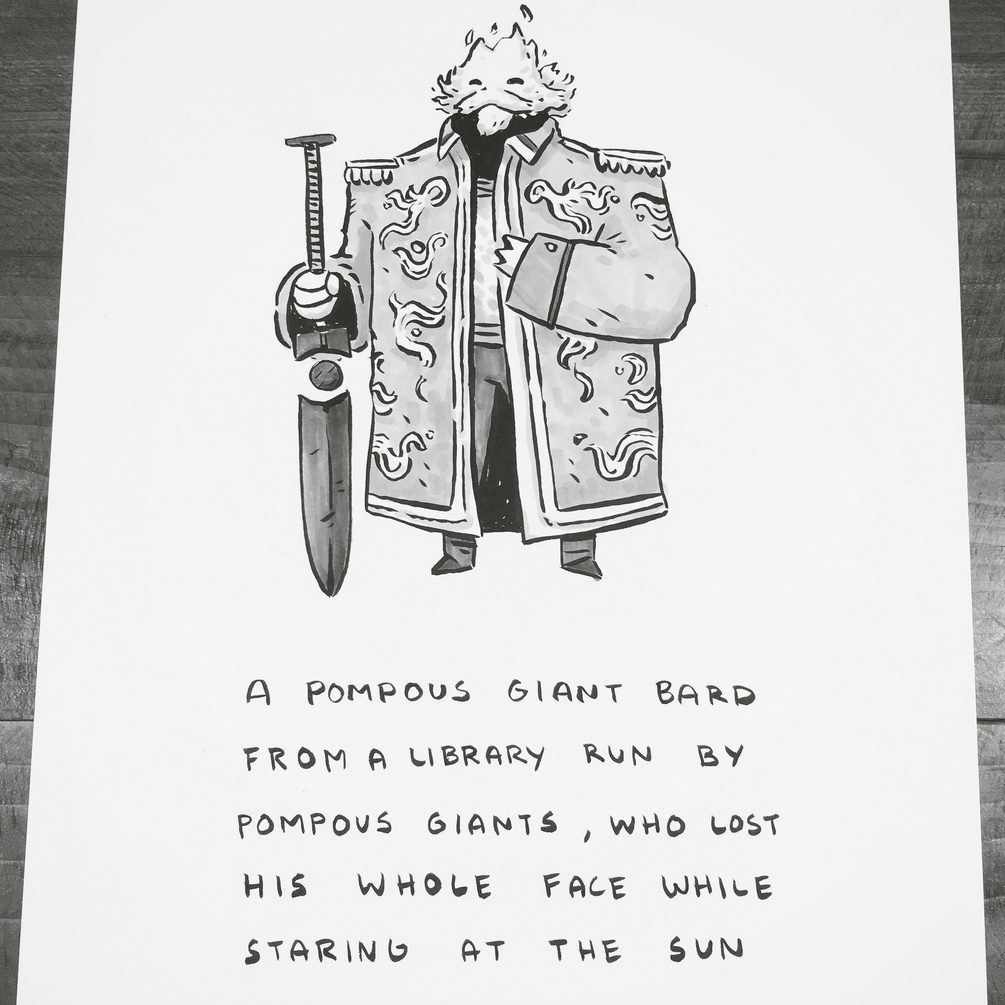 A POMPOUS GIANT BARD
FROM A LIBRARY RUN BY
POMPOUS GIANTS, WHO LOST
HIS WHOLE FACE WHILE
STARING AT THE SUN